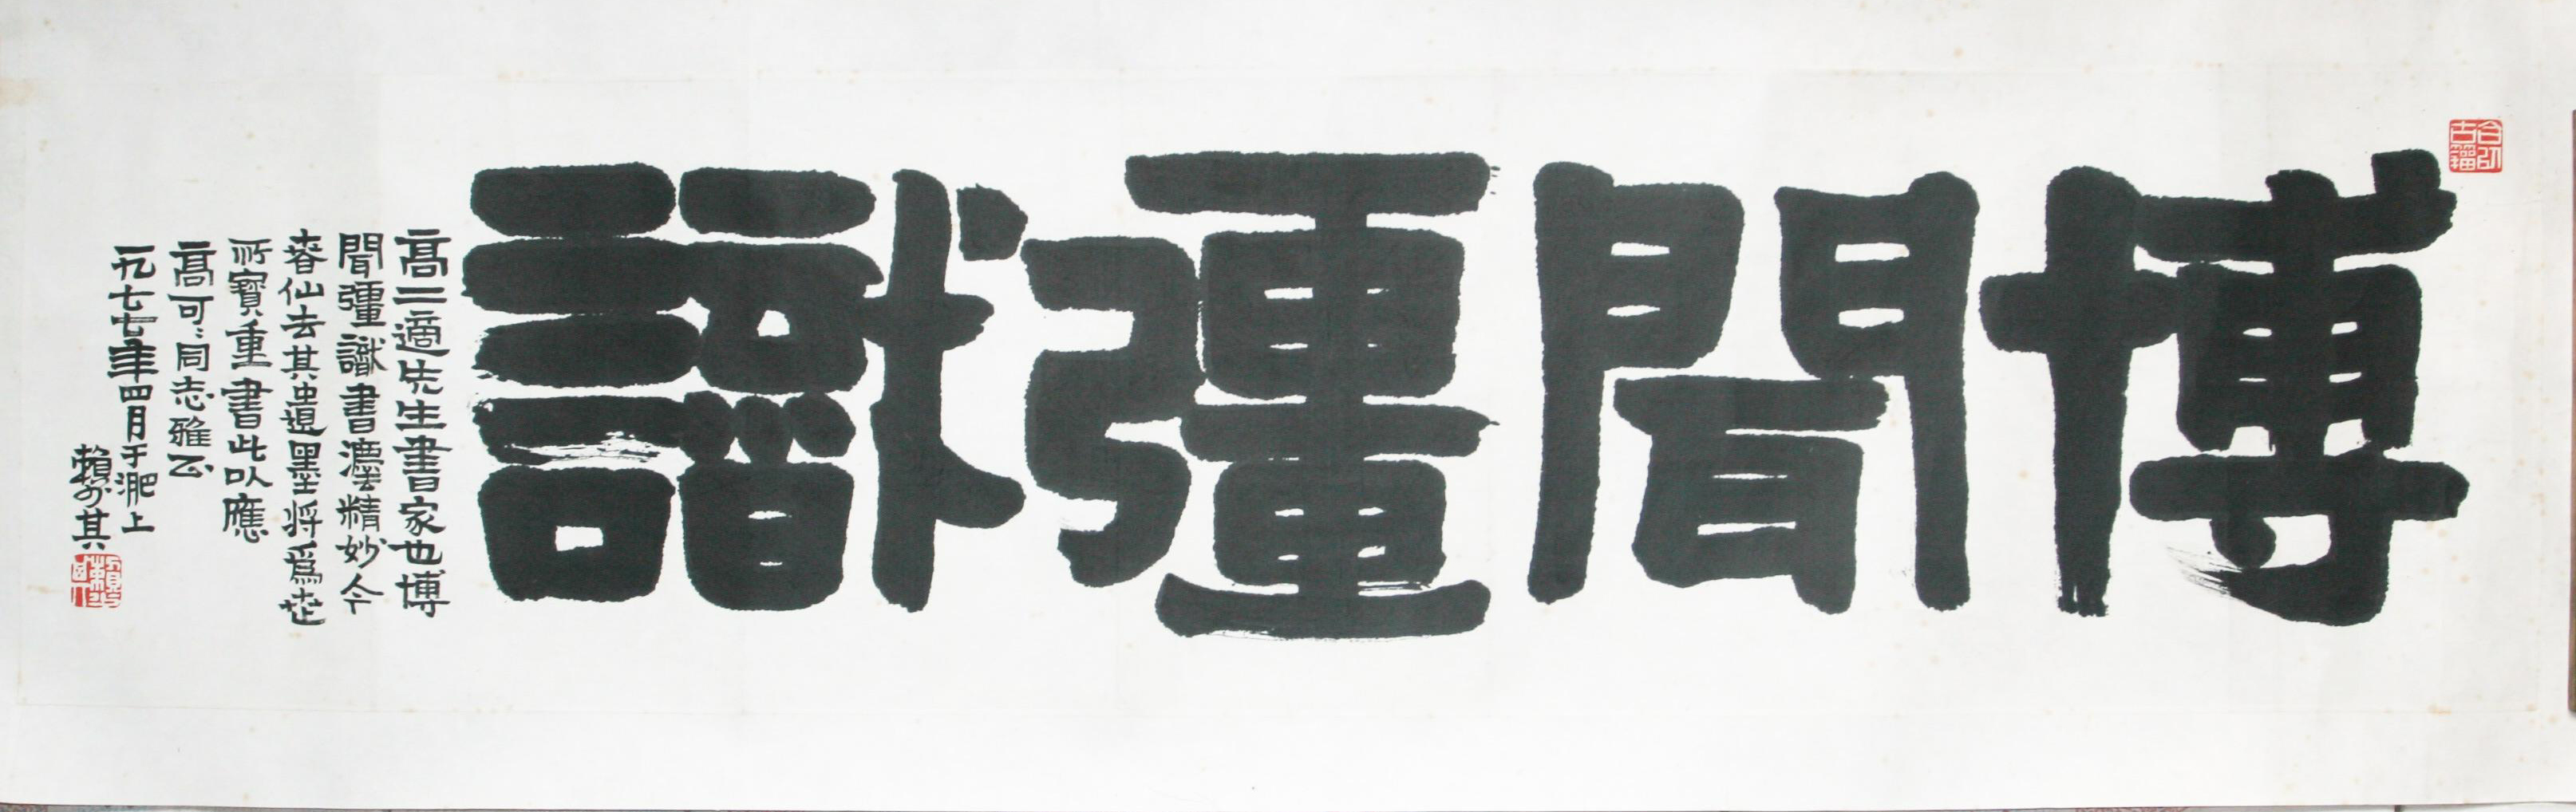 博聞彊識
高二適先生書家也博
聞彊識書灋精妙今
春仙去其遺墨将爲世
所寶重書此以應
高可〻同志雅正
一九七七年四月于淝上
賴少其